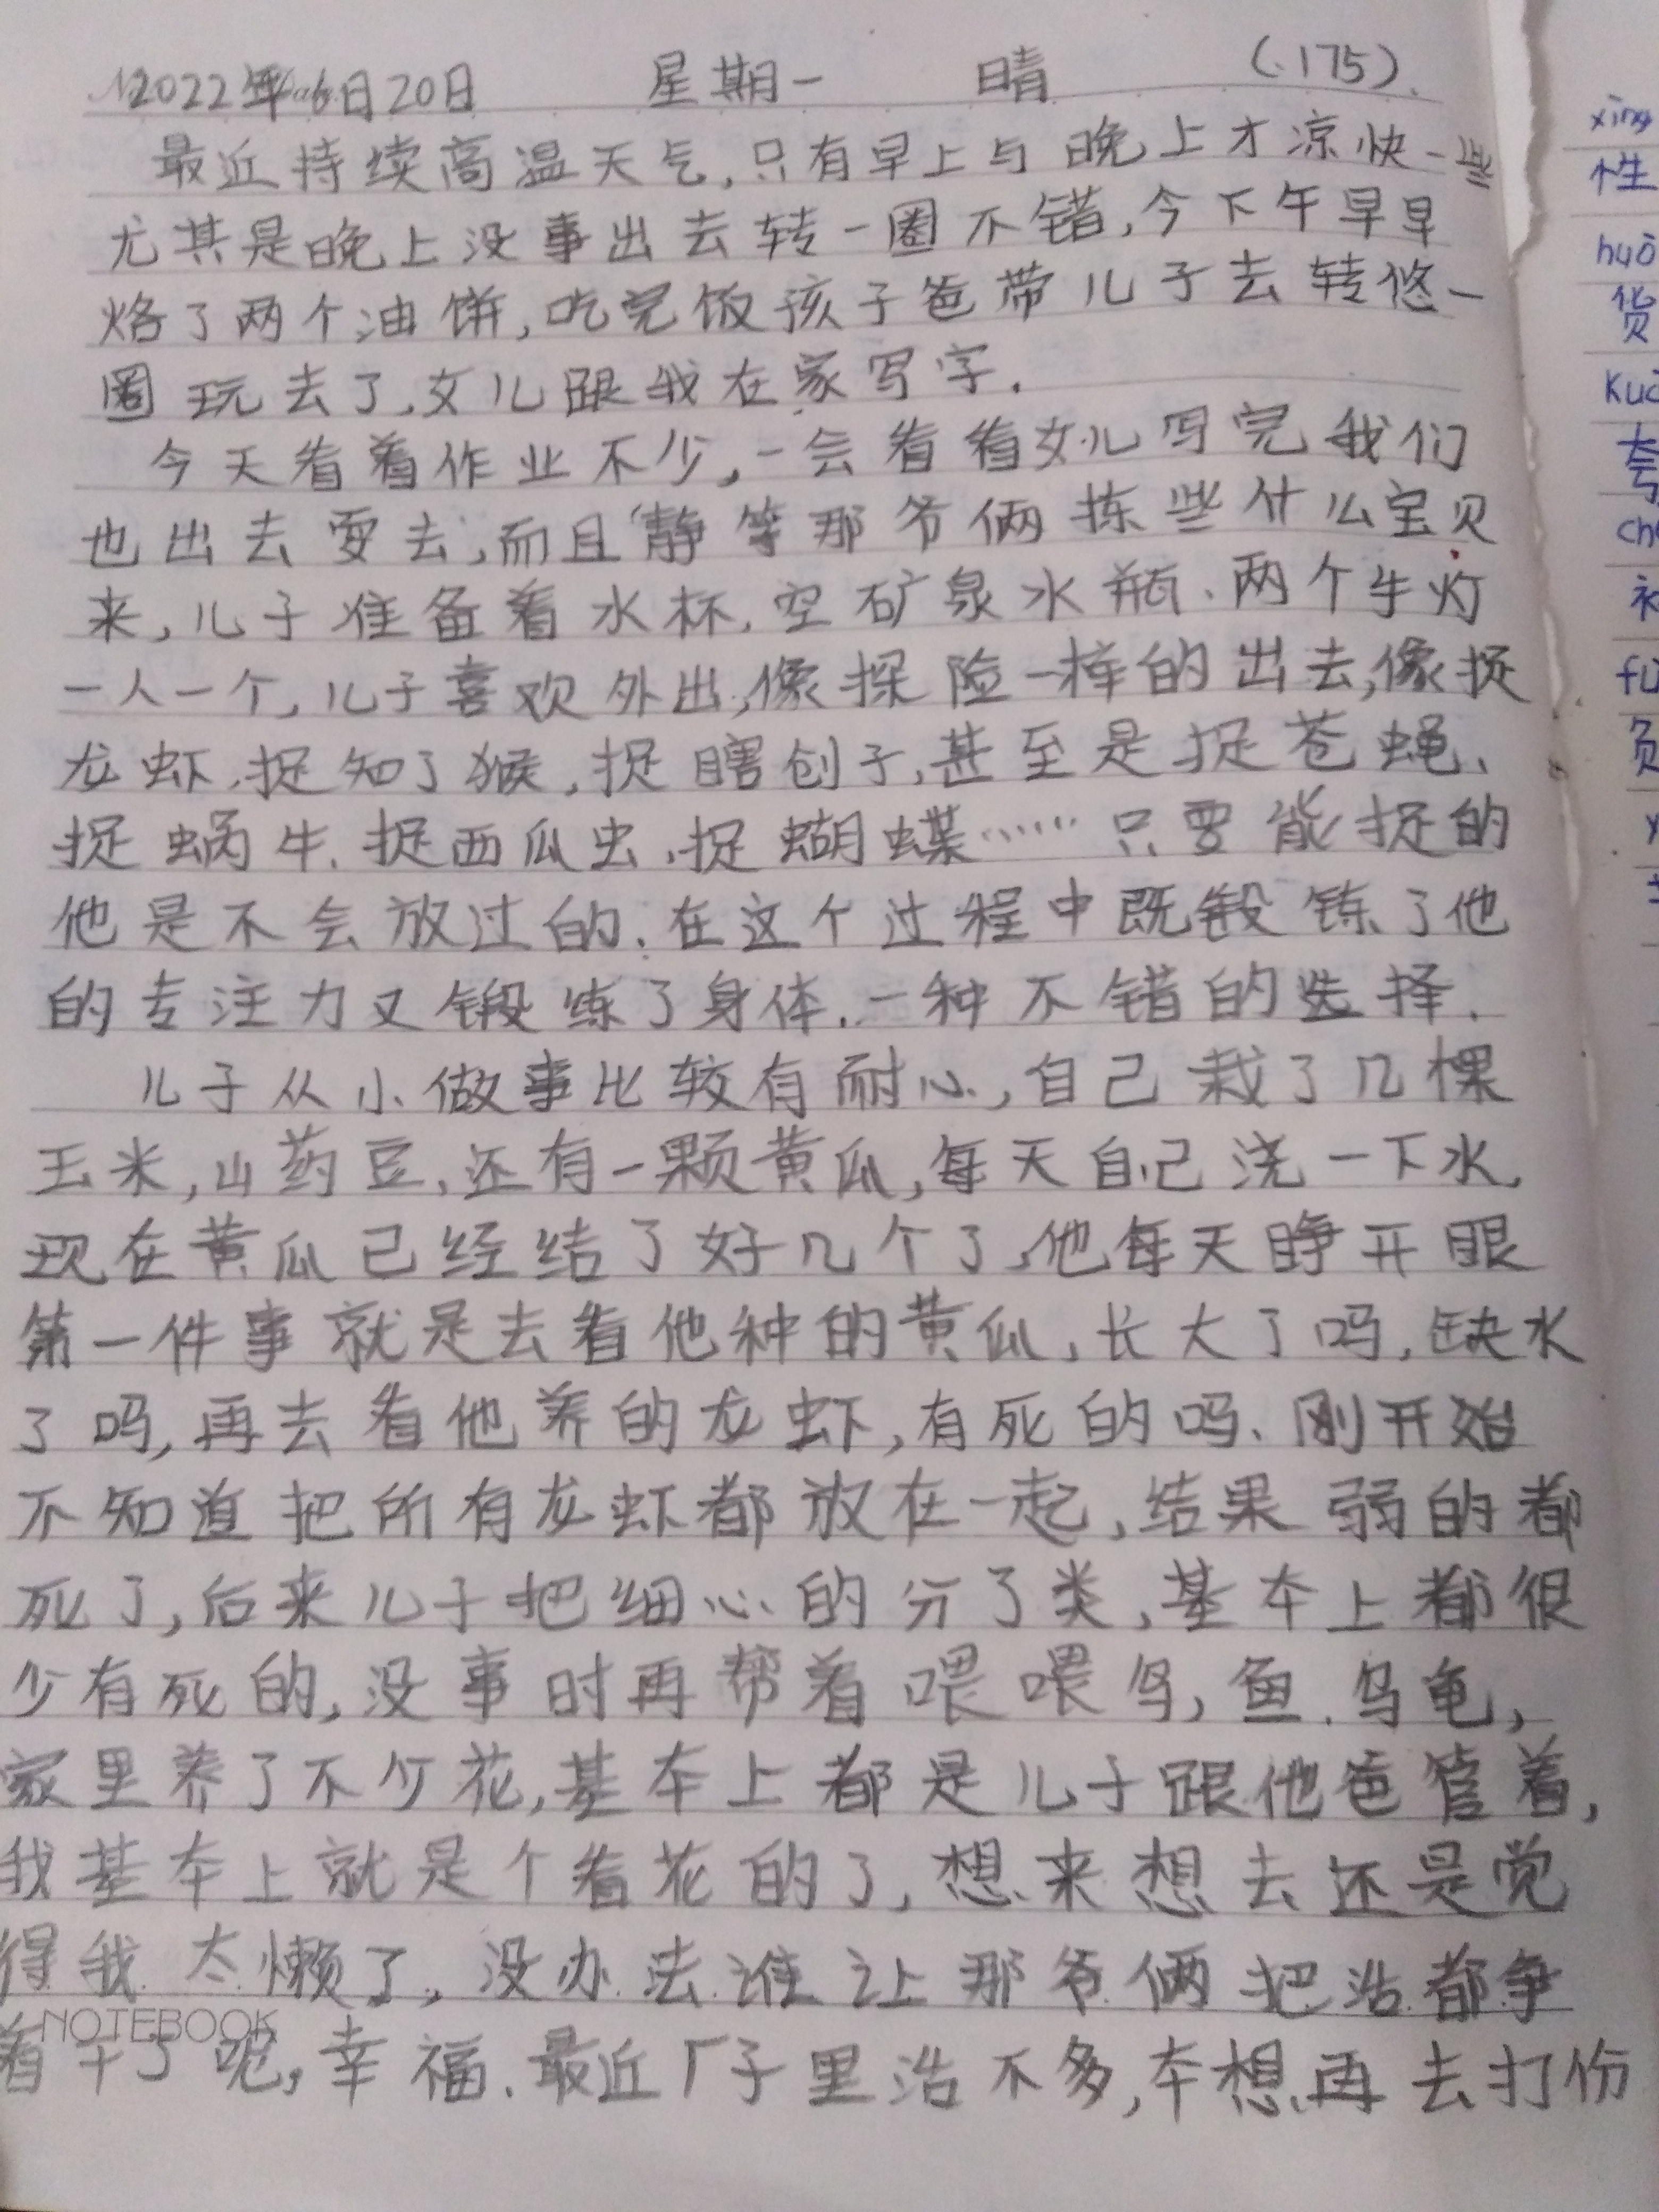 2022年6日20日 星期一 晴 (175)
最近持续高温天气,只有早上与晚上才凉快一些
尤其是晚上没事出去转一圈不错,今下午早早
烙了两个油饼,吃完饭孩子爸带儿子去转悠一
圈玩去了,女儿跟我在家写字.
今天看着作业不少,一会看着女儿写完我们
也出去耍去,而且静等那爷俩拣些什么宝贝
来,儿子准备着水杯,空矿泉水瓶、两个手灯
一人一个,儿子喜欢外出,像探险一样的出去,像捉
龙虾,捉知了猴,捉瞎创子,甚至是捉苍蝇、
捉蜗牛、捉西瓜虫,捉蝴蝶……只要能捉的
他是不会放过的.在这个过程中既锻炼了他
的专注力又锻练了身体.一种不错的选择.
儿子从小做事比较有耐心,自己栽了几棵
玉米,山药豆,还有一颗黄瓜,每天自己浇一下水,
现在黄瓜已经结了好几个了,他每天睁开眼
第一件事就是去看他种的黄瓜,长大了吗,缺水
了吗,再去看他养的龙虾,有死的吗、刚开始
不知道把所有龙虾都放在一起,结果弱的都
死了,后来儿子把细心的分了类,基本上都很
少有死的,没事时再帮着喂喂鸟,鱼.乌龟,
家里养了不少花,基本上都是儿子跟他爸管着,
我基本上就是个看花的了,想来想去还是觉
得我太懒了,没办法谁让那爷俩把活都争
着干了呢,幸福.最近厂子里活不多,本想再去打份
NOTEBOOK
xing
性
huò
货
夸
负